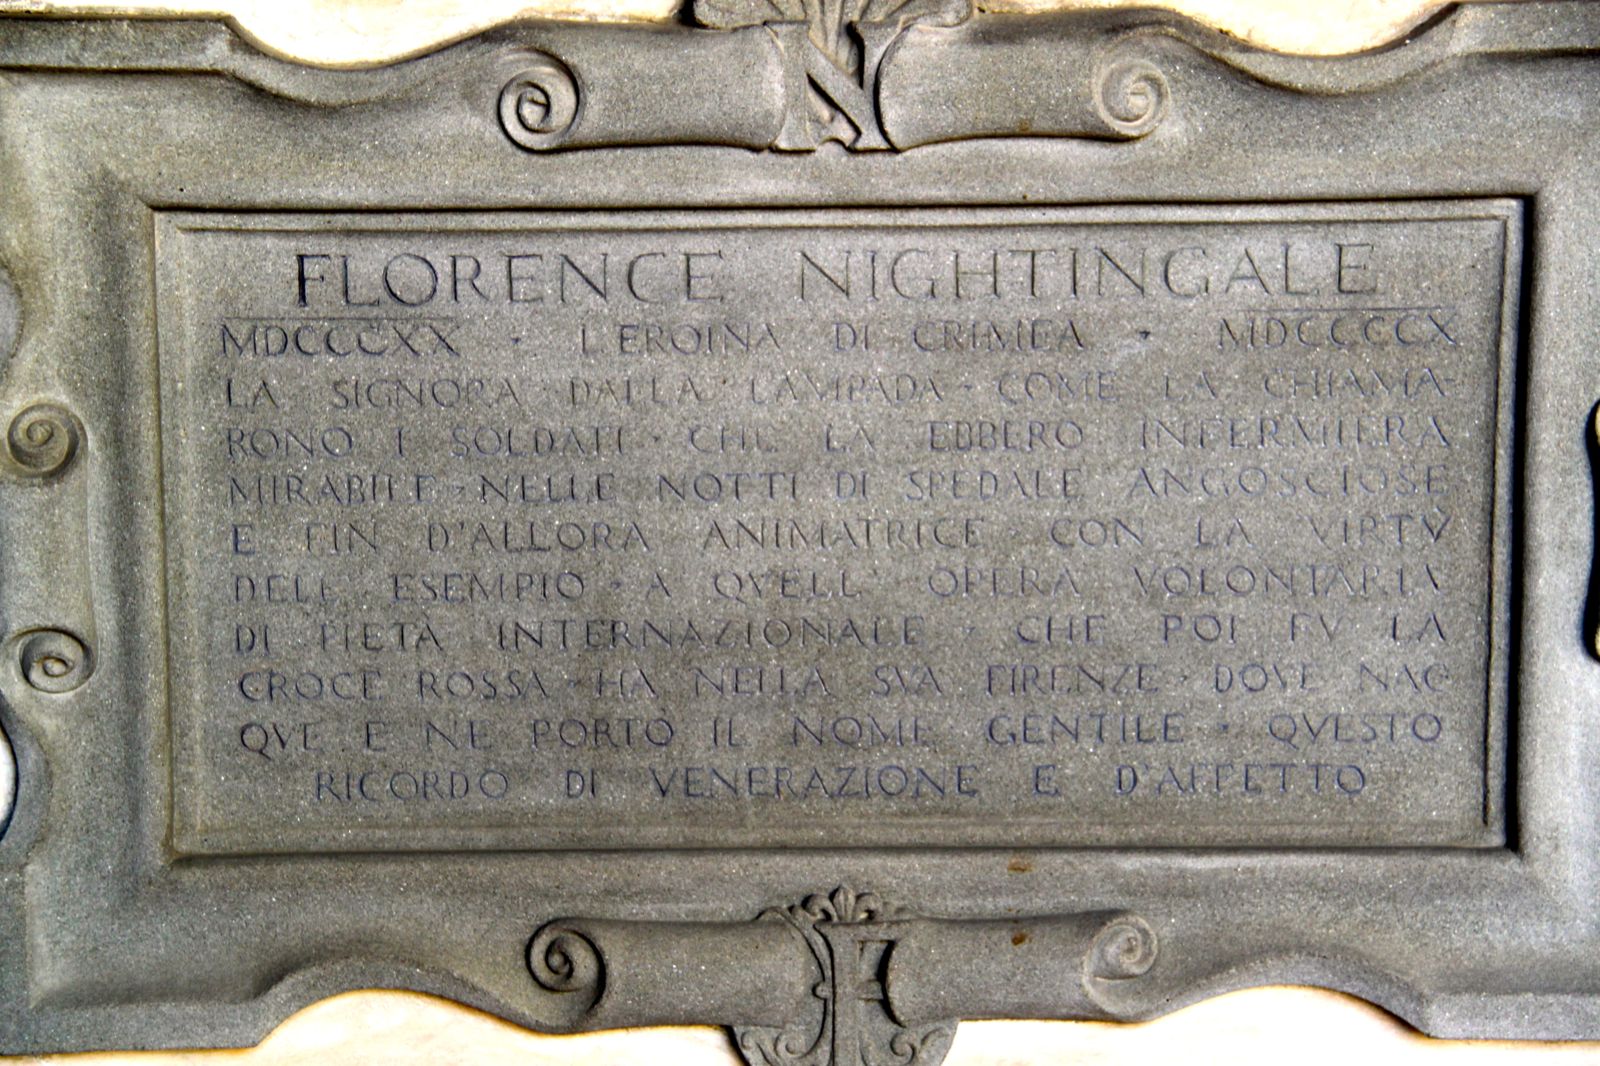 N
FLORENCE NIGHTINGALE
MDCCCXX · L'EROINA DI CRIMEA · MDCCCCX
LA SIGNORA DALLA LAMPADA · COME LA CHIAMA-
RONO I SOLDATI · CHE LA EBBERO INFERMIERA
MIRABILE · NELLE NOTTI DI SPEDALE ANGOSCIOSE
E FIN D'ALLORA ANIMATRICE · CON LA VIRTV̀
DELL' ESEMPIO · A QVELL' OPERA VOLONTARIA
DI PIETÀ INTERNAZIONALE · CHE POI FV LA
CROCE ROSSA · HA NELLA SVA FIRENZE · DOVE NAC
QVE E NE PORTÒ IL NOME GENTILE · QVESTO
RICORDO DI VENERAZIONE E D'AFFETTO
F